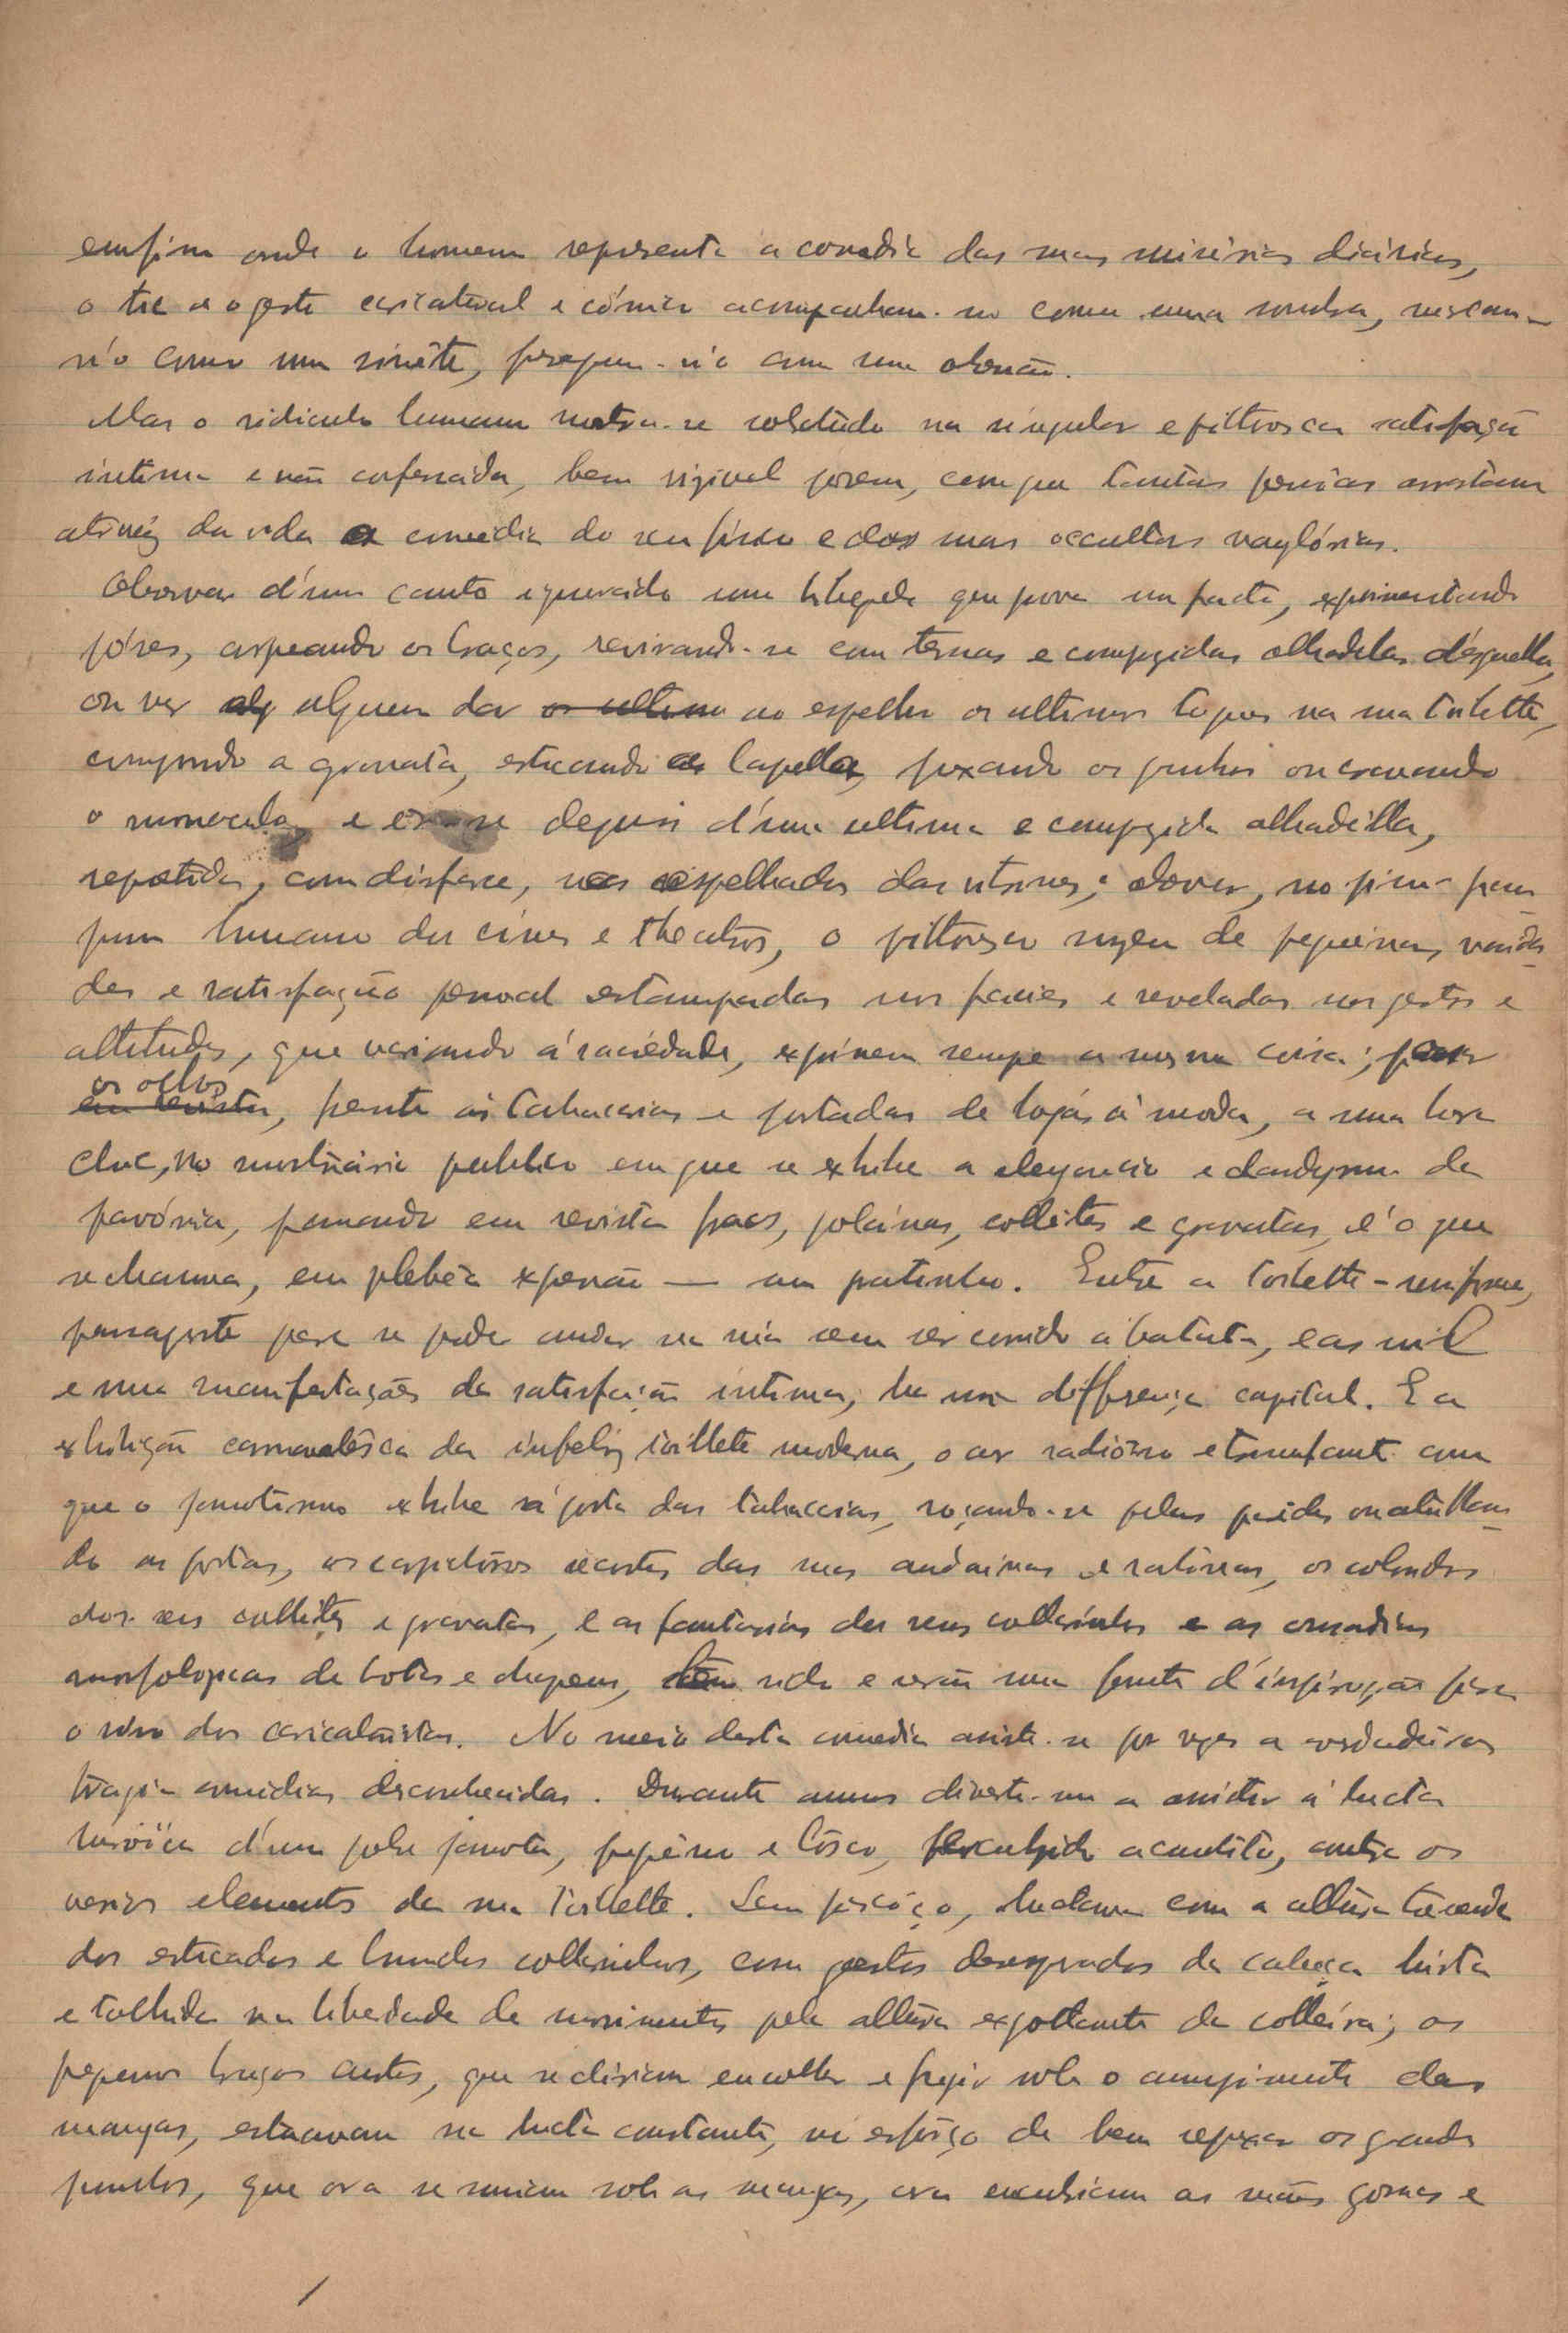 emfim onde o homem representa a comedia das suas misérias diárias,
o tic e o gesto caricatural e cómico acompanham-no como uma sombra, marcam-
n'o como um sinête, perseguem-n'o com uma obsessão.
Mas o ridiculo humano mostra-se sobretudo na singular e pittoresca satisfação
intima e não confessada, bem visivel porem, com que tantas pessoas arrastam
atravéz da vida a comedia do seu fisico e das suas occultas vanglórias.
Observar d'um canto ignorado um bipede que prova um facto, experimentando
póses, arqueando os braços, revirando-se com ternas e compungidas olhadelas d'esguelha,
ou ver alg alguem dar os ultimo ao espelho os ultimos toques na sua toilette,
compondo a gravata, esticando as lapellas, puxando os punhos ou cravando
o monoculo, e depois d'uma ultima e compungida olhadella,
repetida, com disfarce, nos espelhados das vitrines; observar, no pim-pam
pum humano dos cines e theatros, o pittoresco de pequenas vaida-
des e satisfação pessoal estampadas nos facies e reveladas nos gestos e
attitudes, que variando á saciedade, exprimem sempre a mesma coisa; passar
os olhos
em revista, frente ás tabacarias e portadas de lojas á moda, a uma hora
chic, no mostruário publico em que se exhibe a elegancia e dandysmo da
parvónia, passando em revista fracs, polainas, colletes e gravatas, é o que
se chama, em plebêa expressão — um patinho. Entre a toilette-uniforme,
passaporte para se poder andar na rua sem ser corrido á batata, e as mil
e uma manifestações da satisfação intima, ha uma differença capital. E a
exhibição carnavalêsca da infeliz toillete moderna, o ar radiôso e triunfante com
que o janotismo exhibe á porta das tabacarias, roçando-se pelas parêdes ou atulhan-
do as portas, os recortes das suas andainas e sobrecasacas, os coloridos
dos seus collêtes e gravatas, e as fantasias dos seus collarinhos e as comedias
morfologicas de botas e chapeus, têm sido e serão uma fonte d'inspiração para
o riso dos caricaturistas. No meio desta comedia assiste-se por vezes a verdadeiras
tragi-comédias desconhecidas. Durante annos diverti-me a assistir á lucta
heróica d'um pobre janota, pequeno e tôsco, contra os
varios elementos da sua toilette. Sem pescôço, luctava com a altura tremenda
dos esticados e lustrados collarinhos, com gestos desesperados da cabeça hirta
e tolhida na liberdade de movimentos pela altura exgottante da colleira; os
pequenos braços curtos, que se diriam encolher e fugir sob o comprimento das
mangas, estacavam na lucta constante, no esfôrço de bem repuxar os grandes
punhos, que ora se sumiam sob as mangas, ora encubriam as mãos gordas e